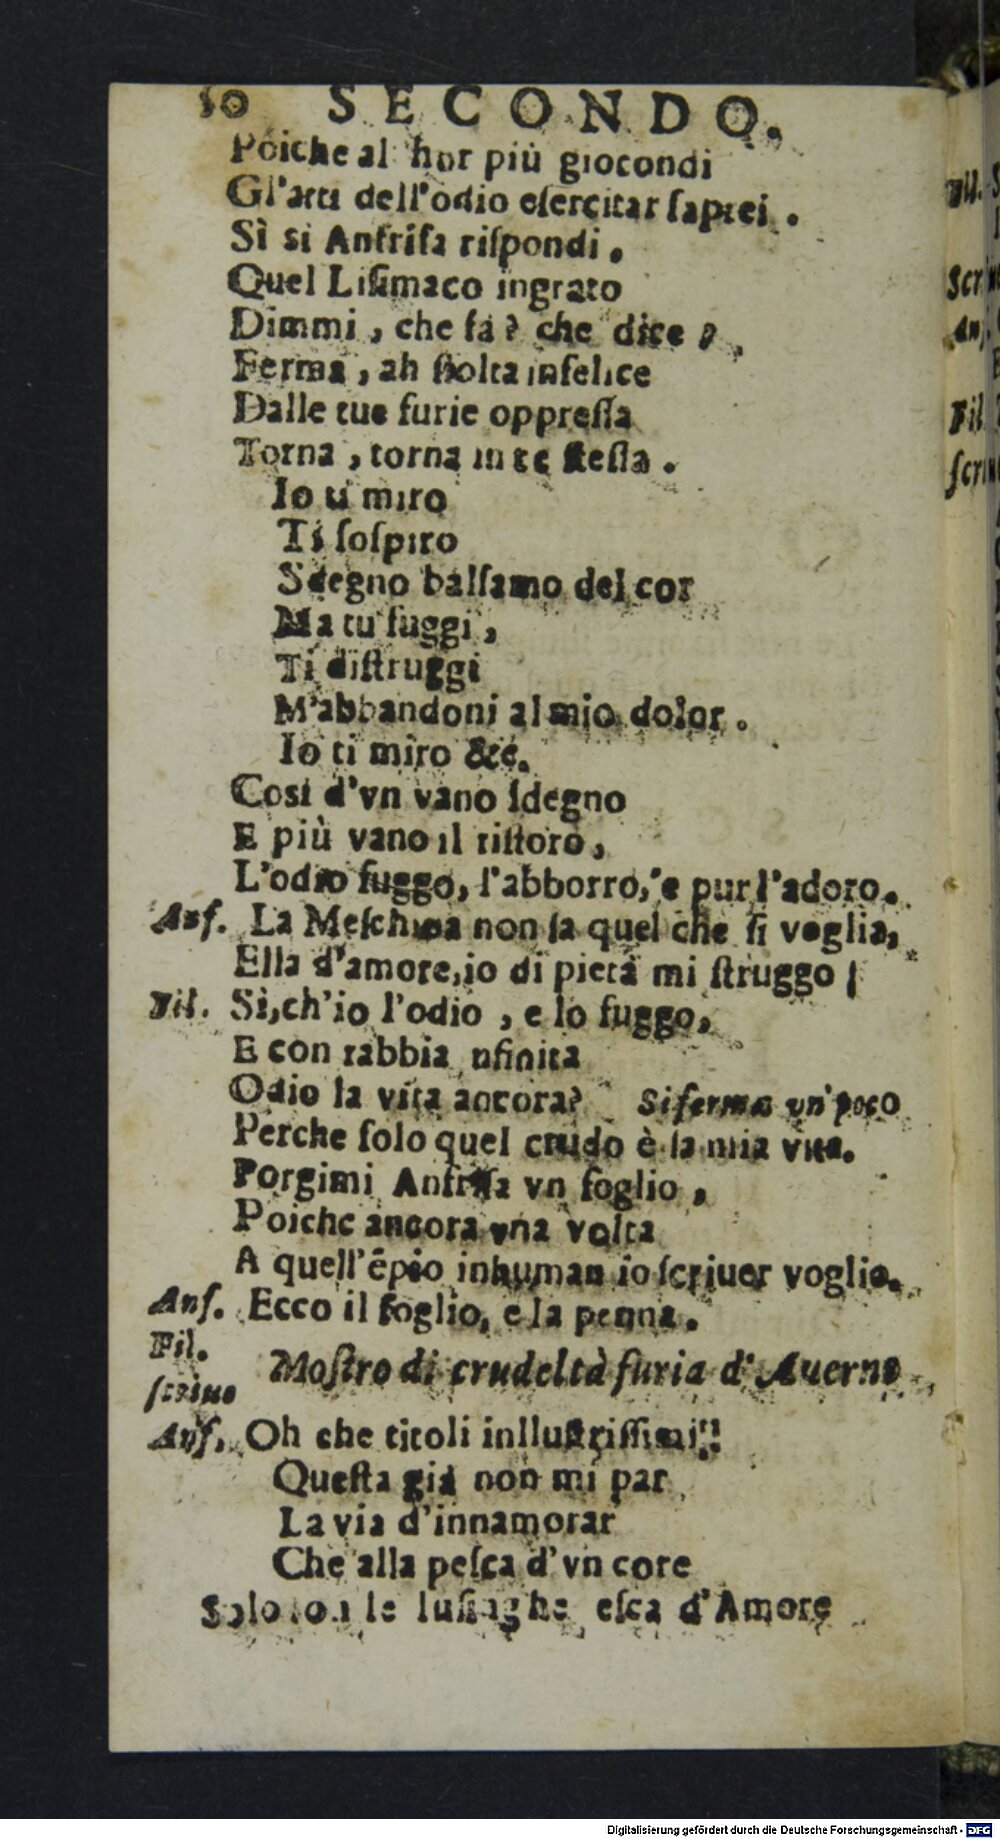 50 SECONDO.
Poiche al hor più giocondi
Gl'atti dell'odio eſercitar ſaprei.
Sì sì Anfriſa riſpondi.
Quel Liſimaco ingrato
Dimmi, che fà? che dice?
Ferma, ah ſtolta infelice
Dalle tue furie oppreſſa
Torna, torna in te ſteſſa.
Io ti miro
Ti ſoſpiro
Sdegno balſamo del cor
Ma tu fuggi,
Ti diſtruggi
M'abbandoni al mio dolor.
Io ti miro &c.
Così d'vn vano ſdegno
E più vano il riſtoro,
L'odio fuggo, l'abborro, e pur l'adoro.
Anf. La Meſchina non ſa quel che ſi voglia,
Ella d'amore, io di pietà mi ſtruggo
Fil. Sì, ch'io l'odio, e lo fuggo,
E con rabbia nfinita
Odio la vita ancora? Si ferma vn poco
Perche ſolo quel crudo è la mia vita.
Porgimi Anfriſa vn foglio,
Poiche ancora vna volta
A quell'ēpio inhuman io ſcriuer voglio.
Anf. Ecco il foglio, e la penna.
Fil.
ſcriue Moſtro di crudeltà furia d'Auerno
Anf. Oh che titoli inlluſtriſſimi!!
Queſta già non mi par
La via d'innamorar
Che alla peſca d'vn core
Solo ſon le luſinghe eſca d'Amore
Digitalisierung gefördert durch die Deutsche Forschungsgemeinschaft - DFG